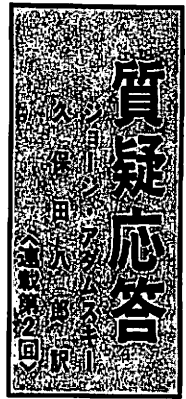 質疑応答
ジョージ・アダムスキー
久保田八郎訳
〈連載第2回〉